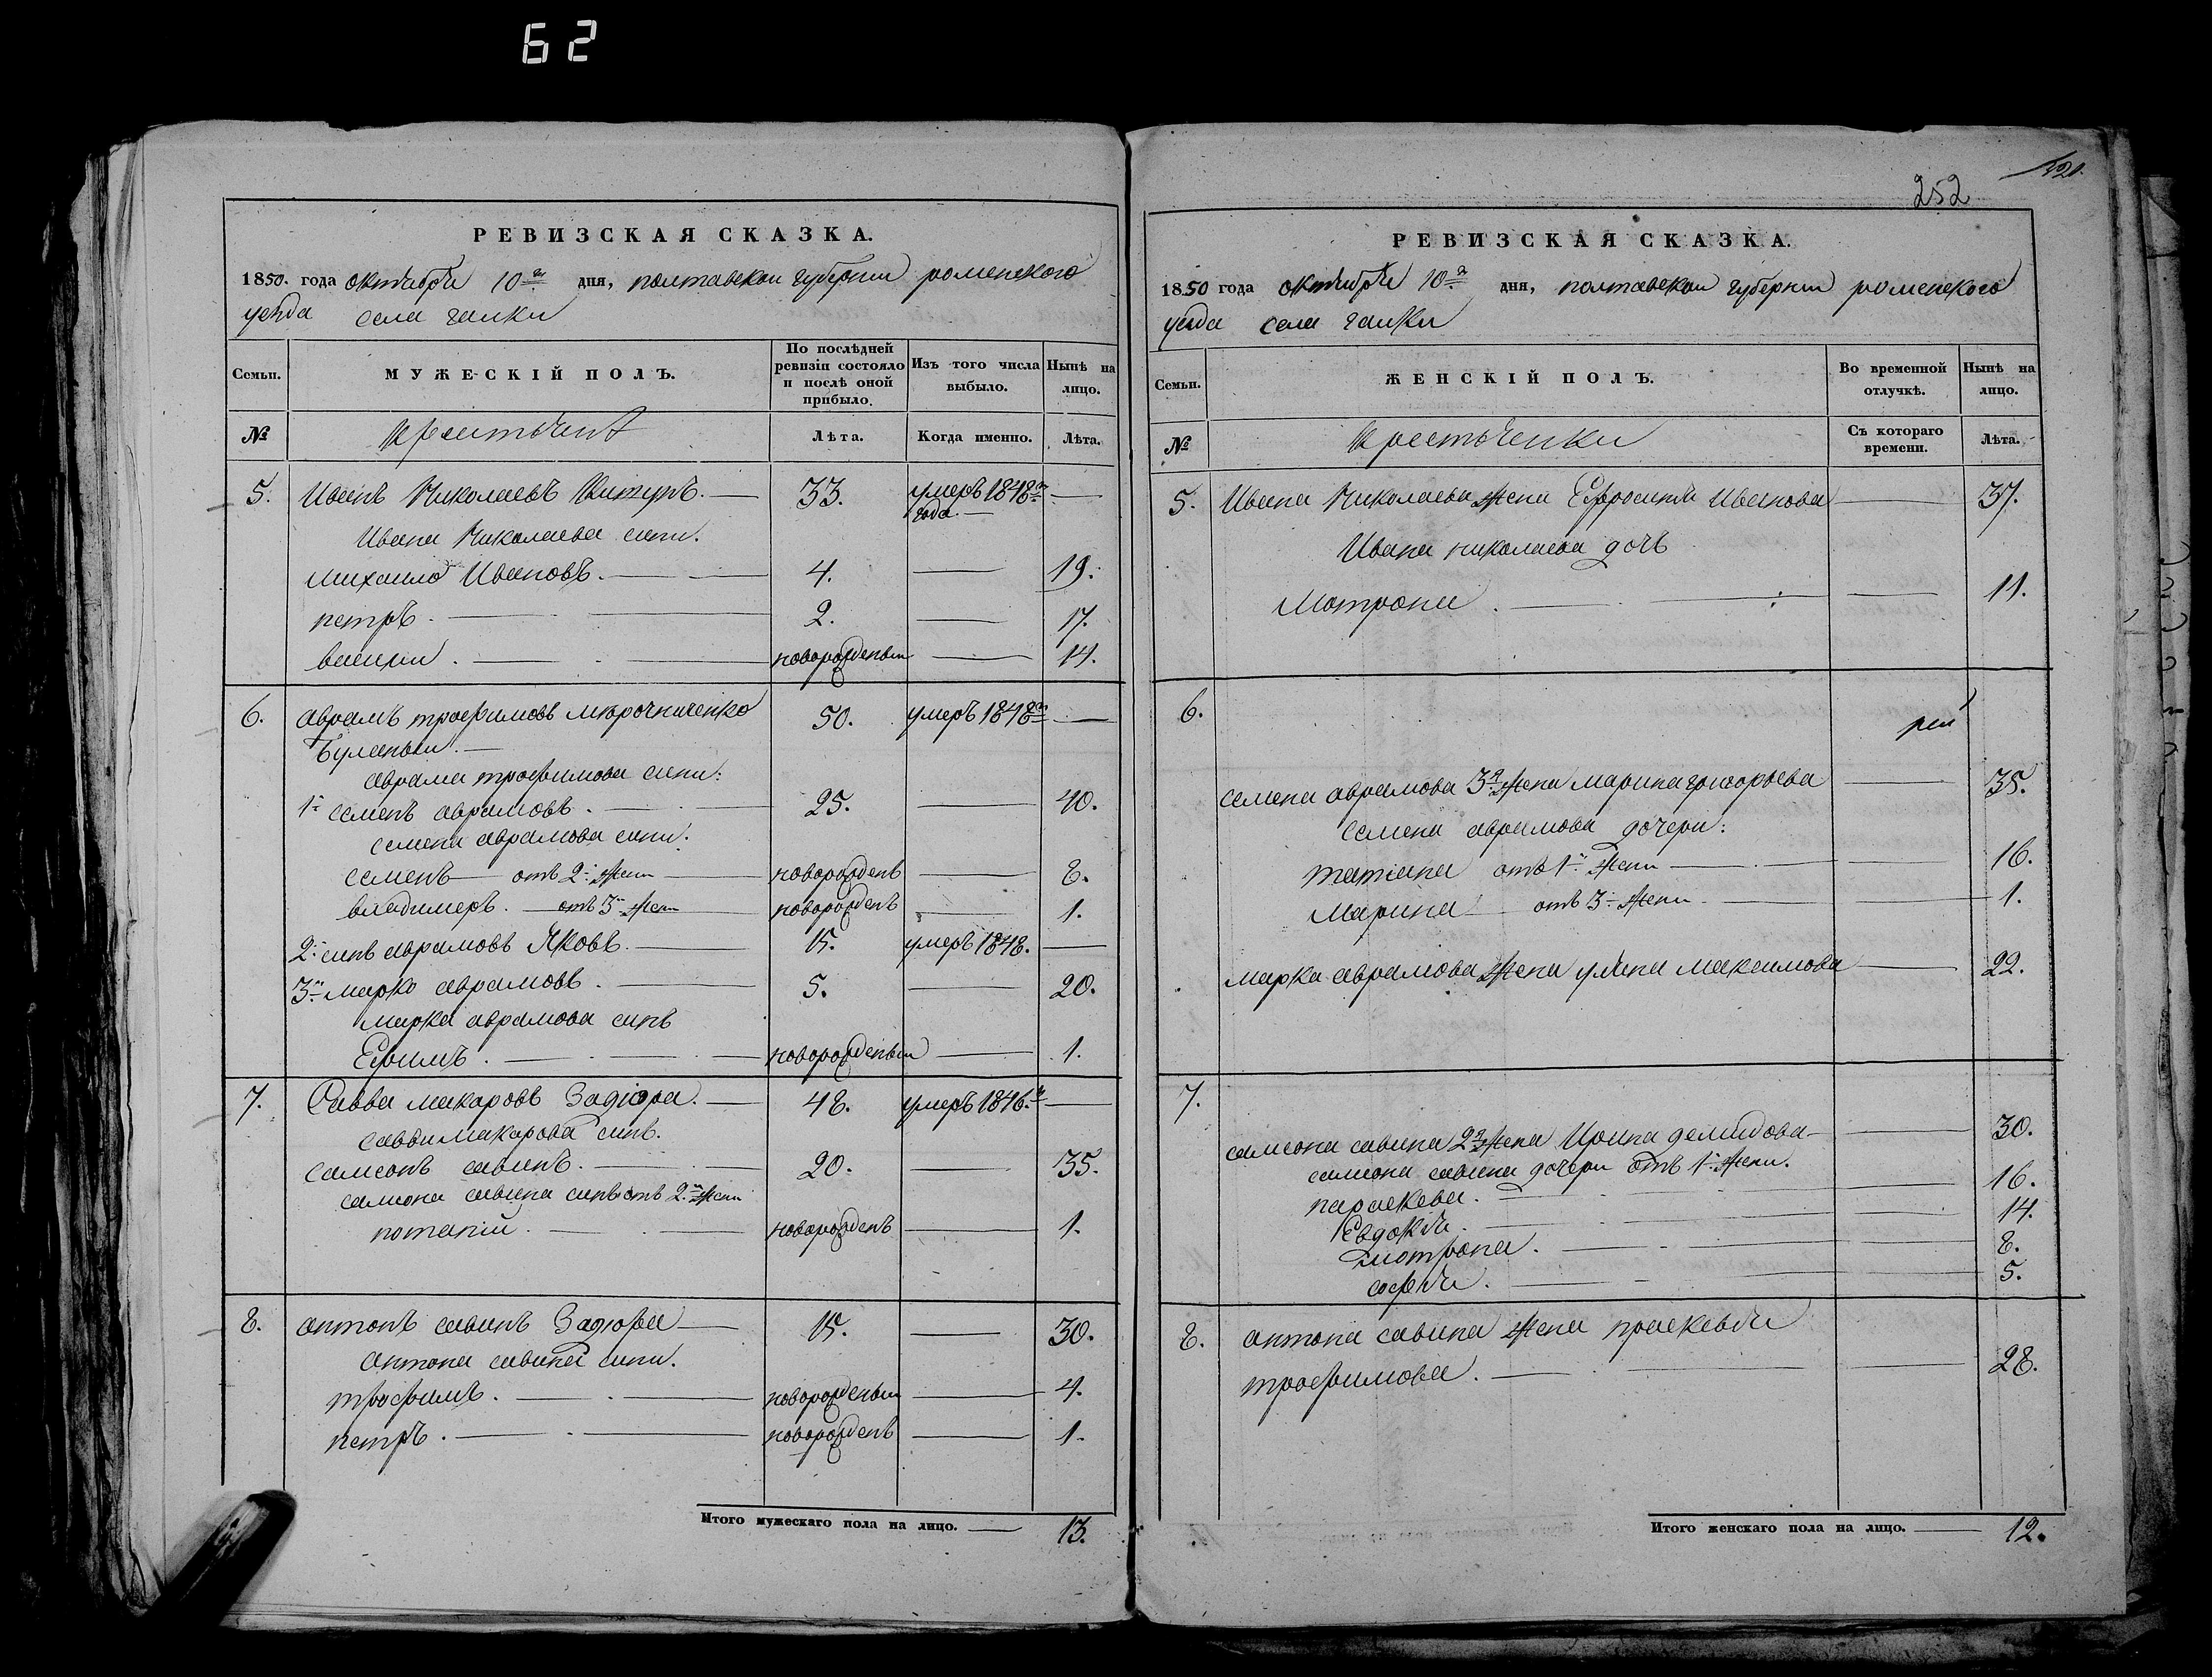 62
РЕВИЗСКАЯ СКАЗКА.
1850. года октября 10го дня, полтавской губернии роменского
уезда села галки
Семьи.
МУЖЕСКІЙ ПОЛЪ.
По послѣдней ревизіи состояло и послѣ оной прибыло.
Изъ того числа выбыло.
Нынѣ на лицо.
№
крестьянъ
Лѣта.
Когда именно.
Лѣта.
5. Иванъ Николаевъ 33. умеръ 1848го года.
Ивана Николаева сыны.
михаило Ивановъ. 4. 19.
петръ. 2. 17.
василий. новорожденый 14.
6. аврамъ трофимовъ мірочниченко 50. умеръ 1848го
Буланый.
аврама трофимова сыны:
1й семенъ аврамовъ. 25. 40.
семена аврамова сыны:
семенъ отъ 2й жены новорожденъ 8.
владимеръ. отъ 3й жены новорожденъ 1.
2й сынъ аврамовъ Яковъ. 15. умеръ 1848.
3й марко аврамовъ. 5. 20.
марка аврамова сынъ
Ефимъ. новорожденый 1.
7. Савва макаровъ Задіора. 48. умеръ 1846.го
саввы макарова сынъ.
самсонъ савинъ. 20. 35.
самсона савина сынъ отъ 2й жены
потапій. новорожденъ 1.
8. антонъ савинъ Задіора 15. 30.
антона савина сыны.
трофимъ. новорожденый 4.
петръ. новорожденъ 1.
Итого мужескаго пола на лицо. 13.
252
РЕВИЗСКАЯ СКАЗКА.
1850 года октября 10го дня, полтавской губернии роменского
уезда села галки
Семьи.
ЖЕНСКІЙ ПОЛЪ.
Во временной отлучкѣ.
Нынѣ на лицо.
№
крестьянки
Съ котораго времени.
Лѣта.
5. Ивана Николаева жена Ефросиния Иванова 37.
Ивана николаева дочь
Мотрона. 11.
6.
семена аврамова 3я жена марина григорьева 35.
семена аврамова дочери:
татіана отъ 1й жены 16.
Марина отъ 3й жены 1.
марка аврамова жена уліана максимова 22.
7.
самсона савина 2я жена Ирина демидова 30.
самсона савина дочери отъ 1й жены.
параскева. 16.
Евдокія. 14.
мотрона. 8.
софія. 5.
8. антона савина жена праскевія
трофимова. 28.
Итого женскаго пола на лицо. 12.